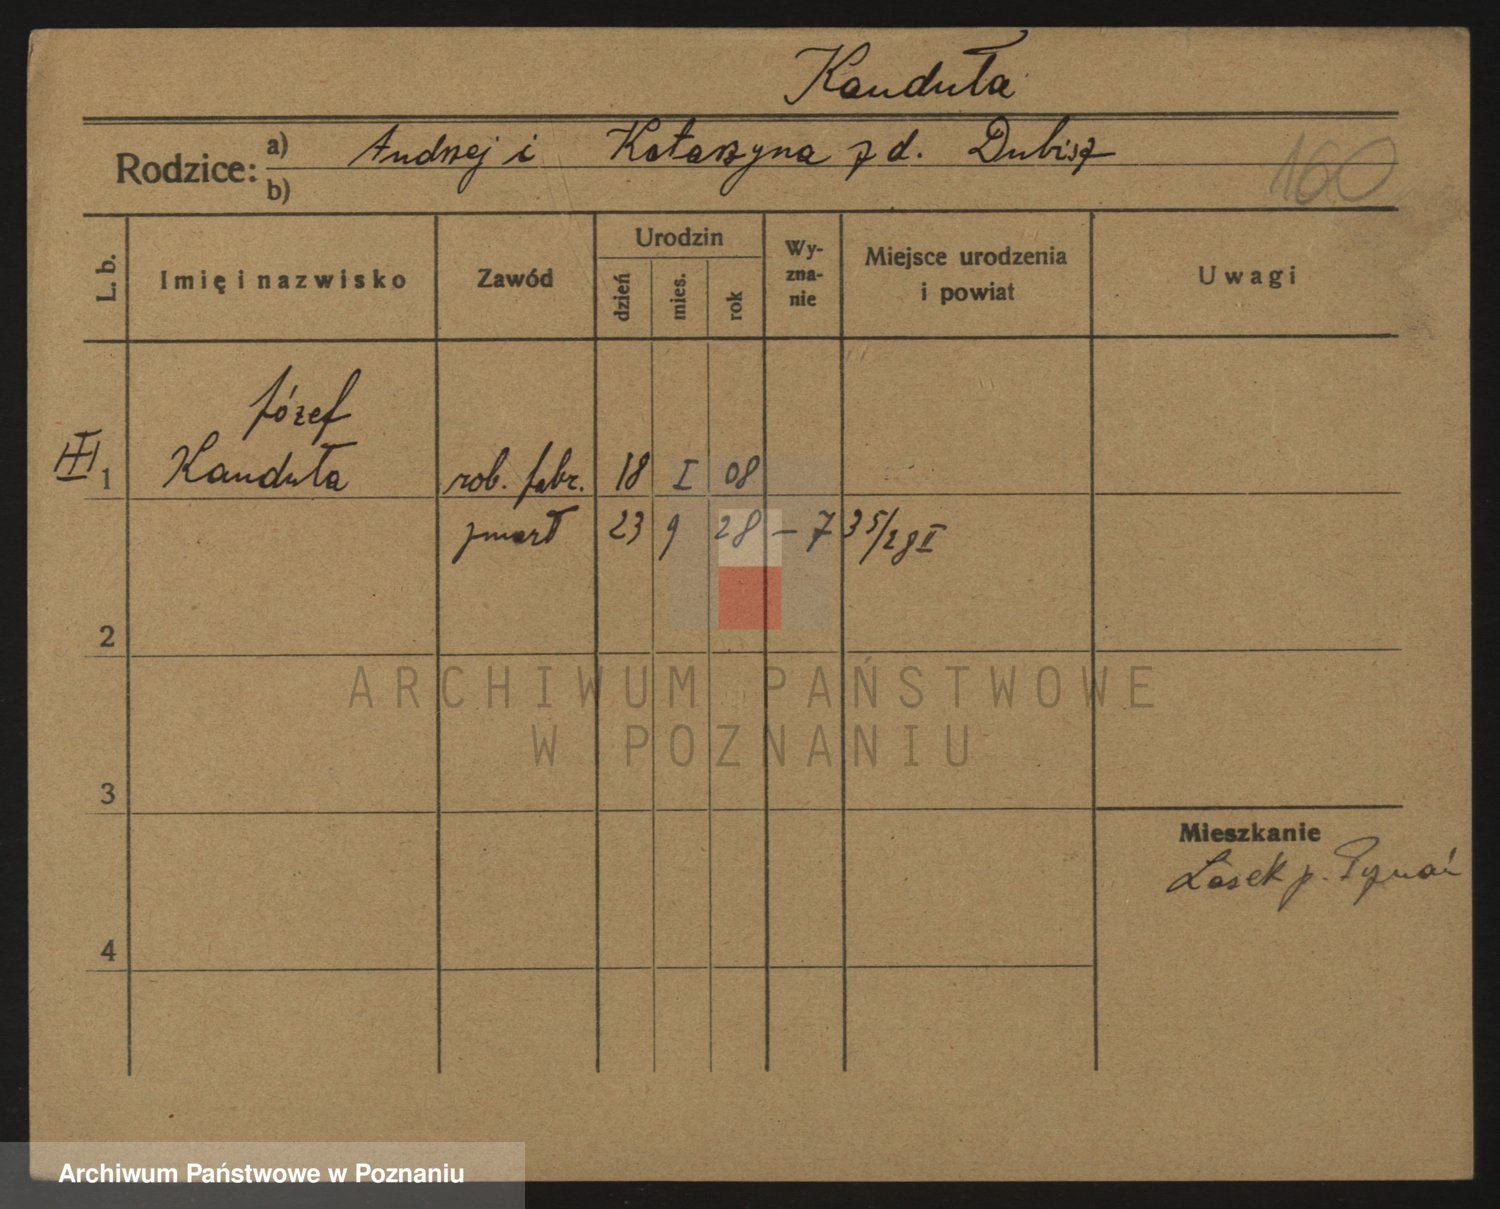 Kanduła
Rodzice: a) Andrzej i Katarzyna z d. Dubisz
b)
160
L. b.
Imię i nazwisko
Zawód
Urodzin
dzień
mies.
rok
Wy-
zna-
nie
Miejsce urodzenia
i powiat
Uwagi
Józef
1 Kanduła rob. fabr. 18 I 08
zmarł 23 9 28 – 735/28 II
2
3
4
Mieszkanie
Lasek p. Poznań
ARCHIWUM PAŃSTWOWE
W POZNANIU
Archiwum Państwowe w Poznaniu